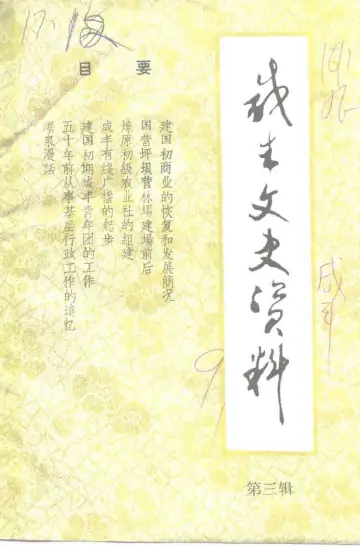 咸丰文史资料
第三辑
目 要
建国初商业的恢复和发展简况
国营坪坝营林场建场前后
燎原初级农业社的组建
咸丰有线广播的起步
建国初期咸丰青年团的工作
五十年前从事基层行政工作的追忆
温泉漫话
咸丰